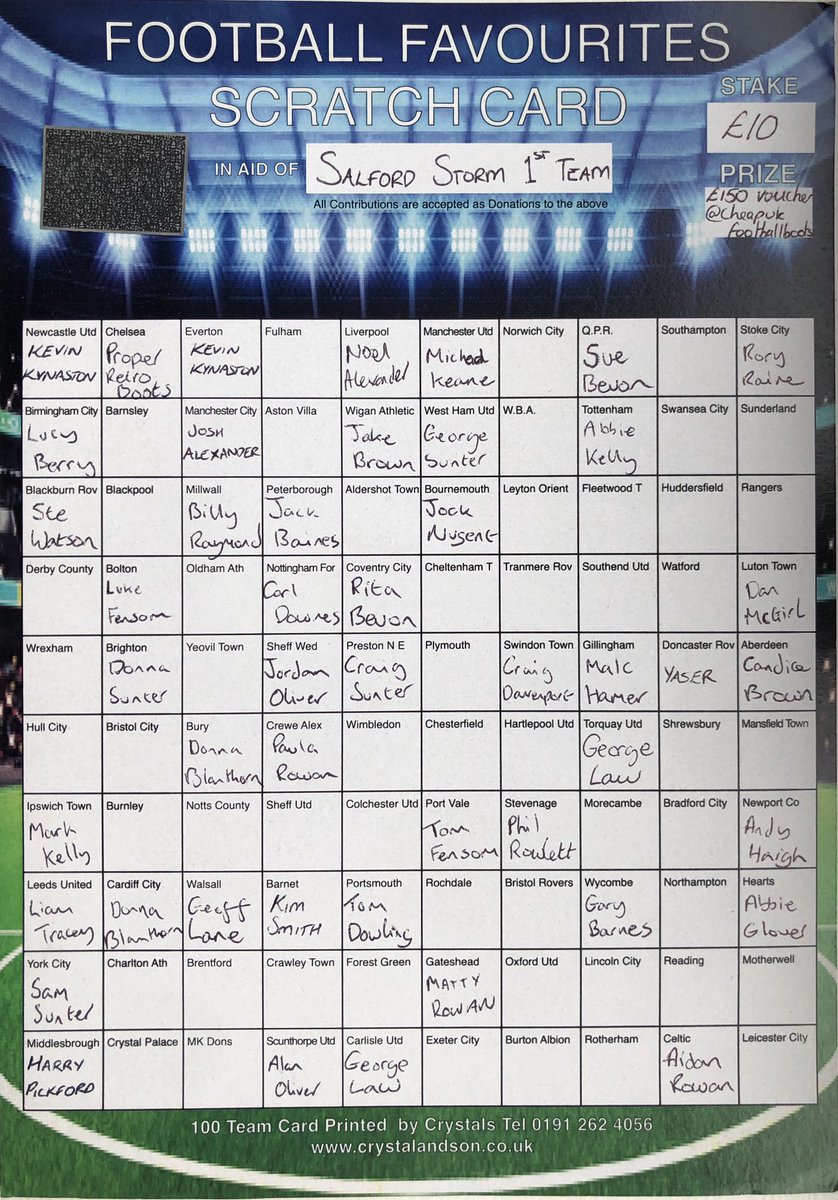 FOOTBALL FAVOURITES
SCRATCH CARD
STAKE
£10
IN AID OF SALFORD STORM 1ST TEAM
PRIZE
£150 voucher
@cheapuk
footballboots
All Contributions are accepted as Donations to the above
Newcastle Utd Chelsea Everton Fulham Liverpool Manchester Utd Norwich City Q.P.R. Southampton Stoke City
KEVIN Proper KEVIN Noel Michael Sue Rory
KYNASTON Retro Boots KYNASTON Alexander Keane Bevon Raine
Birmingham City Barnsley Manchester City Aston Villa Wigan Athletic West Ham Utd W.B.A. Tottenham Swansea City Sunderland
Lucy JOSH Jake George Abbie
Berry ALEXANDER Brown Sunter Kelly
Blackburn Rov Blackpool Millwall Peterborough Aldershot Town Bournemouth Leyton Orient Fleetwood T Huddersfield Rangers
Ste Billy Jack Jock
Watson Raymond Baines Nugent
Derby County Bolton Oldham Ath Nottingham For Coventry City Cheltenham T Tranmere Rov Southend Utd Watford Luton Town
Luke Carl Rita Dan
Fensom Downes Bevon McGirl
Wrexham Brighton Yeovil Town Sheff Wed Preston N E Plymouth Swindon Town Gillingham Doncaster Rov Aberdeen
Donna Jordan Craig Craig Malc YASER Candice
Sunter Oliver Sunter Davenport Hamer Brown
Hull City Bristol City Bury Crewe Alex Wimbledon Chesterfield Hartlepool Utd Torquay Utd Shrewsbury Mansfield Town
Donna Paula George
Blanthorn Rowan Law
Ipswich Town Burnley Notts County Sheff Utd Colchester Utd Port Vale Stevenage Morecambe Bradford City Newport Co
Mark Tom Phil Andy
Kelly Fensom Rowlett Haigh
Leeds United Cardiff City Walsall Barnet Portsmouth Rochdale Bristol Rovers Wycombe Northampton Hearts
Liam Donna Geoff Kim Tom Gary Abbie
Tracey Blanthorn Lane SMITH Dowling Barnes Glover
York City Charlton Ath Brentford Crawley Town Forest Green Gateshead Oxford Utd Lincoln City Reading Motherwell
Sam MATTY
Sunter ROWAN
Middlesbrough Crystal Palace MK Dons Scunthorpe Utd Carlisle Utd Exeter City Burton Albion Rotherham Celtic Leicester City
HARRY Alan George Aidan
PICKFORD Oliver Law Rowan
100 Team Card Printed by Crystals Tel 0191 262 4056
www.crystalandson.co.uk